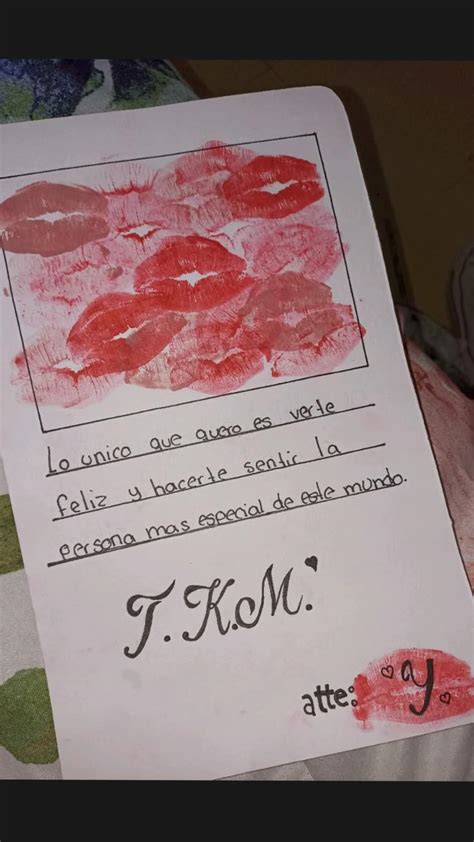 Lo unico que quero es verte
feliz y hacerte sentir la
persona mas especial de este mundo.
T.K.M.
atte: y